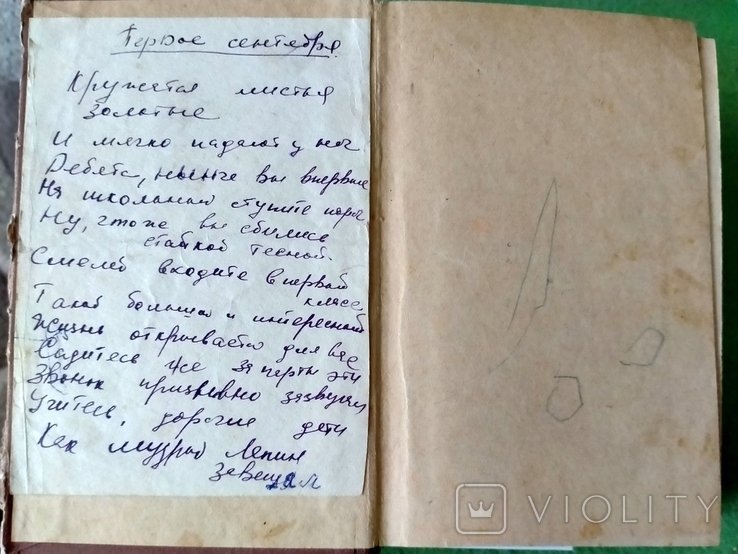 Первое сентября.
Кружатся листья
золотые
И мягко падают у ног
Ребята, нынче вы впервые
На школьный ступите порог
Ну, что же вы сбились
стайкой тесной.
Смелей входите в первый
класс,
Такой большой и интересный
жизнь открывается для вас
Садитесь же за парты эти
Звонок призывно зазвучал
Учитесь, дорогие дети
Как мудрый Ленин
завещал
VIOLITY